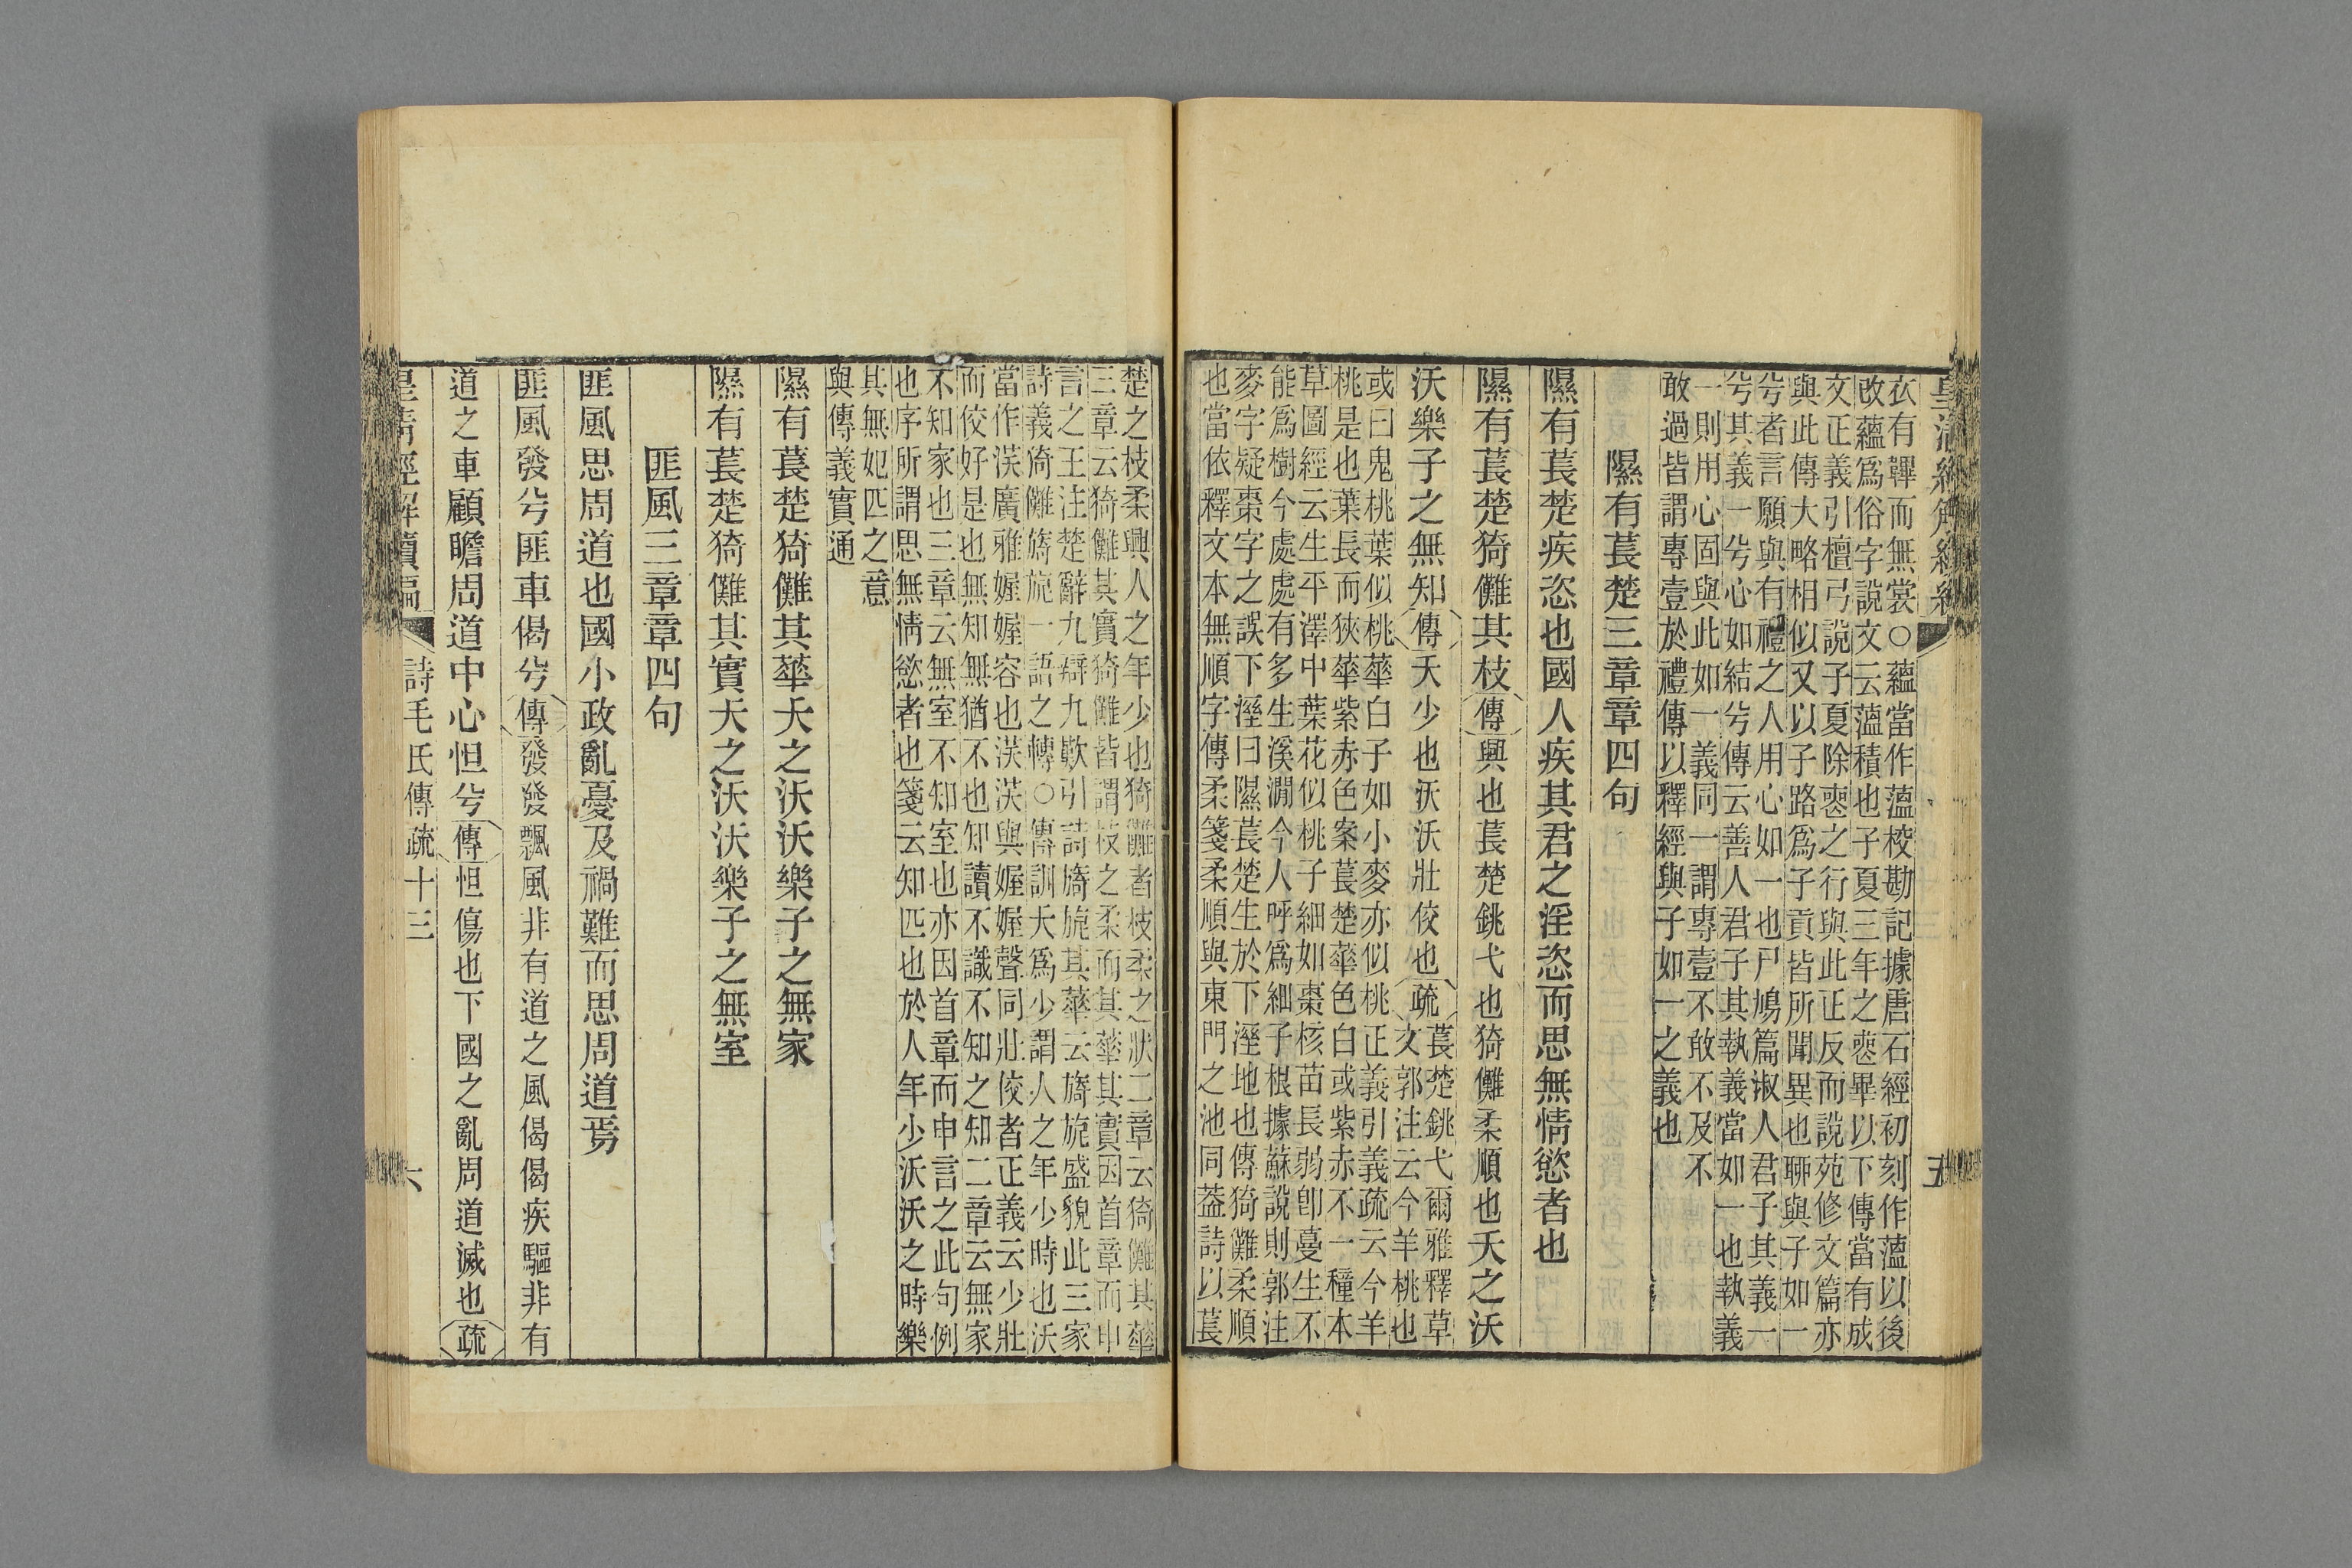 皇清經解續編
五
衣有韠而無裳○蘊當作薀挍勘記據唐石經初刻作薀以後
改蘊爲俗字說文云薀積也子夏三年之喪畢以下傳當有成
文正義引檀弓說子夏除喪之行與此正反而說苑修文篇亦
與此傳大略相似又以子路爲子貢皆所聞異也聊與子如一
兮者言願與有禮之人用心如一也尸鳩篇淑人君子其義一
兮其義一兮心如結兮傳云善人君子其執義當如一也執義
一則用心固與此如一義同一謂專壹不敢不及不
敢過皆謂專壹於禮傳以釋經與子如一之義也
隰有萇楚三章章四句
隰有萇楚疾恣也國人疾其君之淫恣而思無情慾者也
隰有萇楚猗儺其枝傳興也萇楚銚弋也猗儺柔順也夭之沃
沃樂子之無知傳夭少也沃沃壯佼也疏萇楚銚弋爾雅釋草
文郭注云今羊桃也
或曰鬼桃葉似桃華白子如小麥亦似桃正義引義疏云今羊
桃是也葉長而狹華紫赤色案萇楚華色白或紫赤不一種本
草圖經云生平澤中葉花似桃子細如棗核苗長弱卽蔓生不
能爲樹今處處有多生溪澗今人呼爲細子根據蘇說則郭注
麥字疑棗字之誤下溼曰隰萇楚生於下溼地也傳猗儺柔順
也當依釋文本無順字傳柔箋柔順與東門之池同葢詩以萇
楚之枝柔興人之年少也猗儺者枝柔之狀二章云猗儺其華
三章云猗儺其實猗儺皆謂枝之柔而其華其實因首章而申
言之王注楚辭九辯九歎引詩旖旎其華云旖旎盛貌此三家
詩義倚儺旖旎一語之轉○傳訓夭爲少謂人之年少時也沃
當作渶廣雅媉媉容也渶渶與媉媉聲同壯佼者正義云少壯
而佼好是也無知無猶不也知讀不識不知之知二章云無家
不知家也三章云無室不知室也亦因首章而申言之此句例
也序所謂思無情慾者也箋云知匹也於人年少沃沃之時樂
其無妃匹之意
與傳義實通
隰有萇楚猗儺其華夭之沃沃樂子之無家
隰有萇楚猗儺其實夭之沃沃樂子之無室
匪風三章章四句
匪風思周道也國小政亂憂及禍難而思周道焉
匪風發兮匪車偈兮傳發發飄風非有道之風偈偈疾驅非有
道之車顧瞻周道中心怛兮傳怛傷也下國之亂周道滅也疏
皇清經解續編
詩毛氏傳疏十三
六